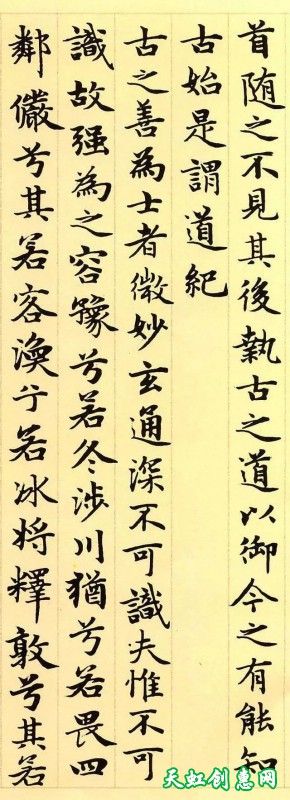 首随之不見其後執古之道以御今之有能知
古始是謂道紀
古之善為士者微妙玄通深不可識夫惟不可
識故强為之容豫兮若冬涉川猶兮若畏四
鄰儼兮其若客渙兮若冰将釋敦兮其若
天虹创惠网